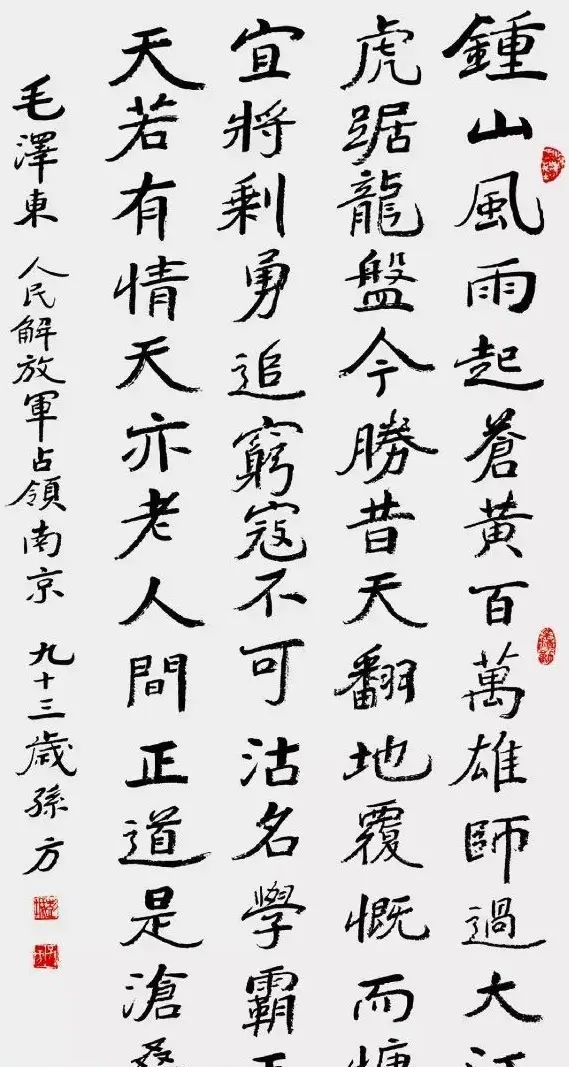 鍾山風雨起蒼黃百萬雄師過大江
虎踞龍盤今勝昔天翻地覆慨而慷
宜將剩勇追窮寇不可沽名學霸王
天若有情天亦老人間正道是滄桑
毛澤東 人民解放軍占領南京 九十三歲孫方